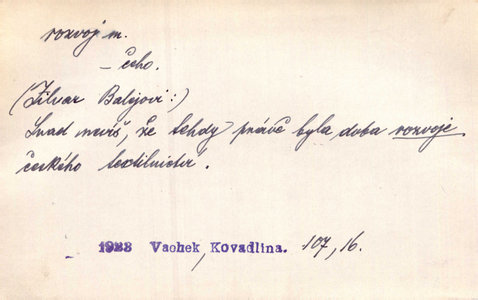 rozvoj m.
– čeho.
(Žilvar Balejovi:)
Snad nevíš, že tehdy právě byla doba rozvoje
českého textilnictví.
1923 Vachek, Kovadlina. 107, 16.